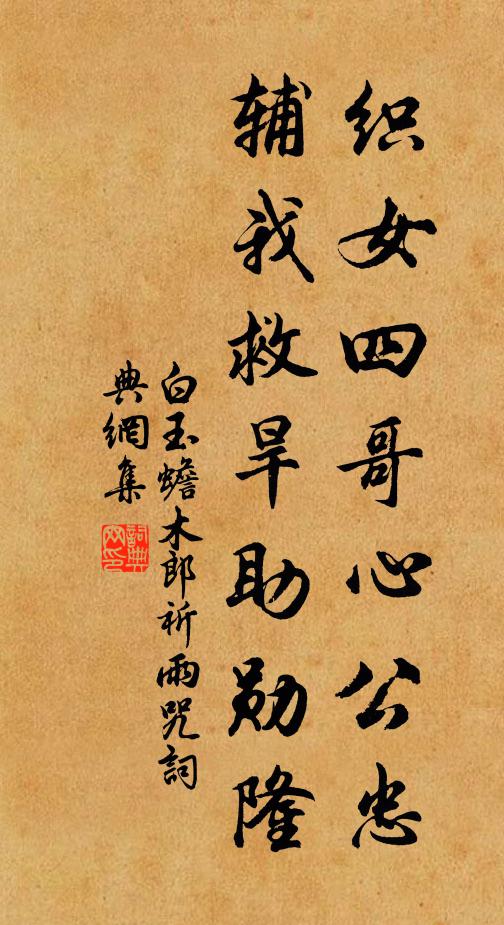 织女四哥心公忠
辅我救旱助勋隆
白玉蟾木郎祈雨咒詞
典網集
詞典网印